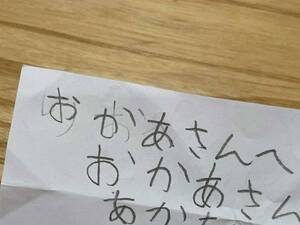 おかあさんへ
おかあさん
あか